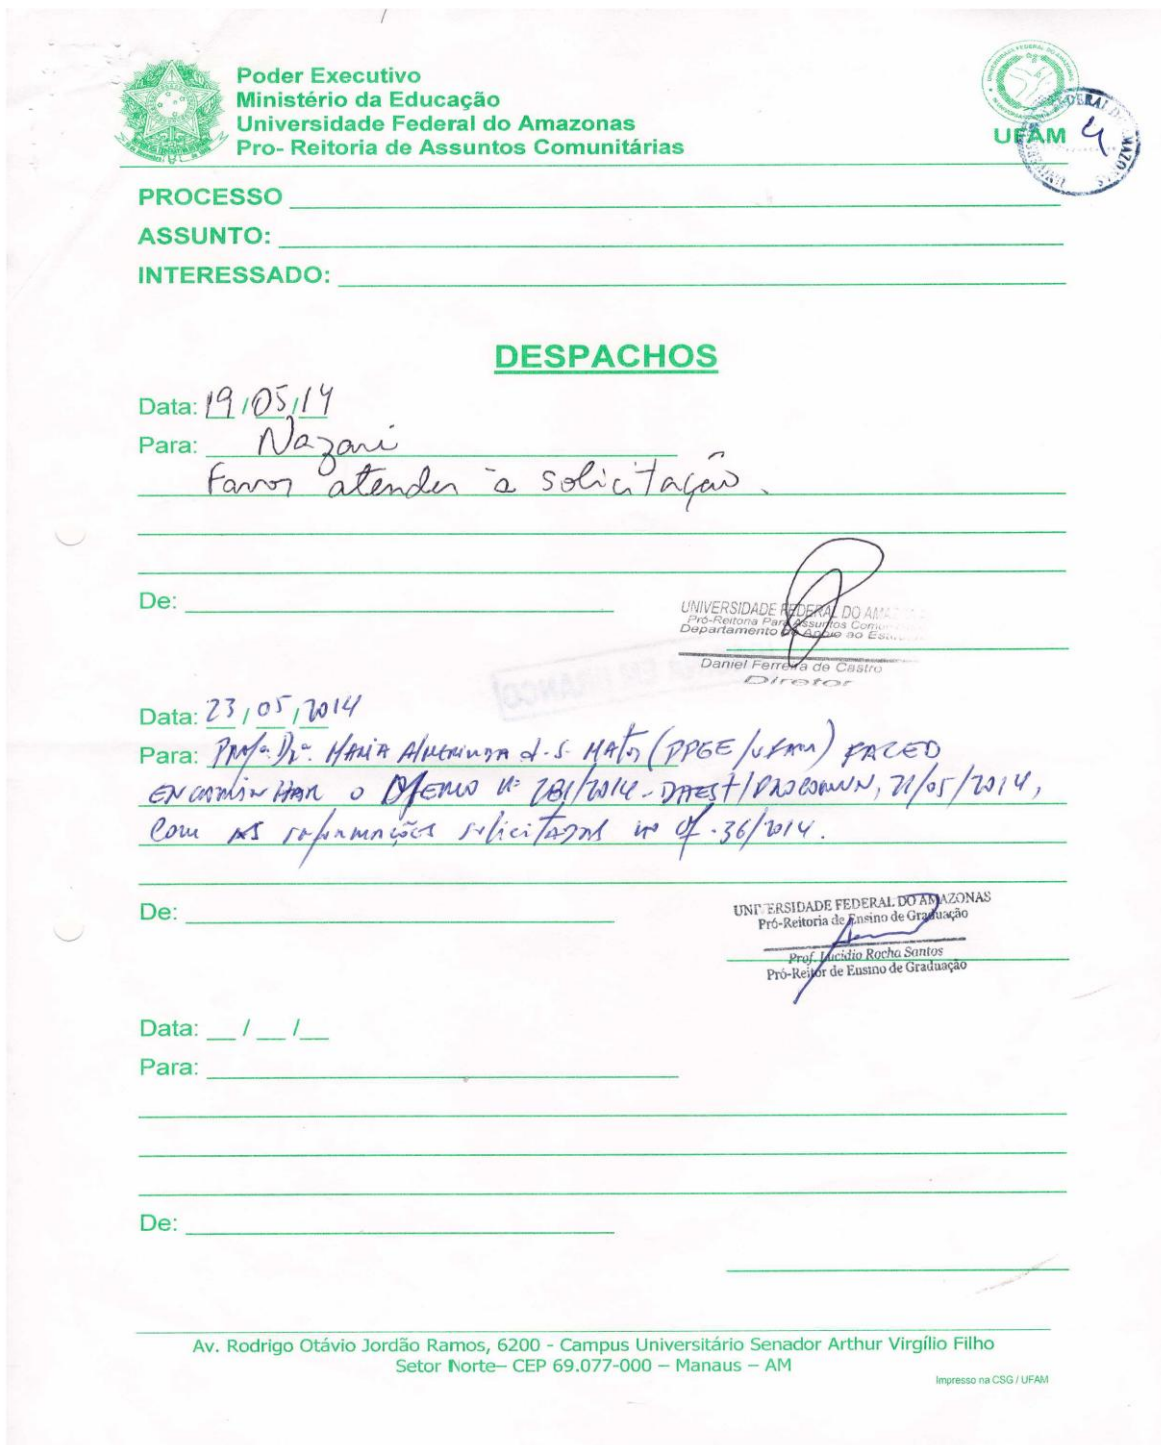 Poder Executivo
Ministério da Educação
Universidade Federal do Amazonas
Pro- Reitoria de Assuntos Comunitárias
UFAM
4
PROCESSO
ASSUNTO:
INTERESSADO:
DESPACHOS
Data: 19/05/14
Para: Nazaré
Favor atender à solicitação.
De:
UNIVERSIDADE FEDERAL DO
Pró-Reitoria Para Assuntos
Departamento de Apoio ao
Daniel Ferreira de Castro
Diretor
EM BRANCO
Data: 23/05/2014
Para: Profa. Dra. Maria Almerinda d. S. Matos (PPGE/UFAM) FACED
ENCAMINHAR o Nº 281/2014-DAEST/PROCOMUN, 21/05/2014,
com as informações solicitadas no Of. 36/2014.
De:
UNIVERSIDADE FEDERAL DO AMAZONAS
Pró-Reitoria de Ensino de Graduação
Prof. Lucídio Rocha Santos
Pró-Reitor de Ensino de Graduação
Data: __ / __ /__
Para:
De:
Av. Rodrigo Otávio Jordão Ramos, 6200 - Campus Universitário Senador Arthur Virgílio Filho
Setor Norte– CEP 69.077-000 – Manaus – AM
Impresso na CSG / UFAM